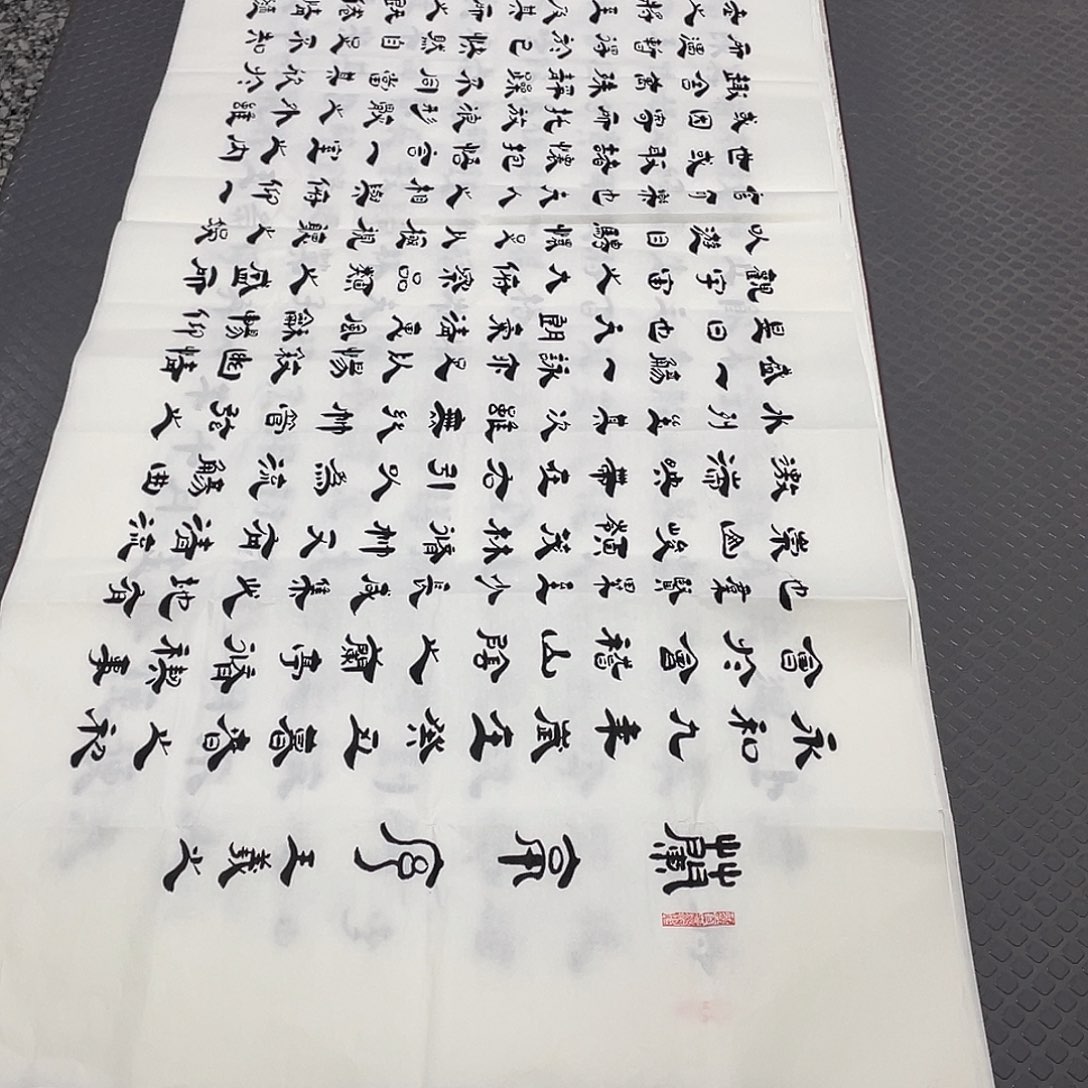 蘭亭序 王羲之
永和九年歲在癸丑暮春之初
會於會稽山陰之蘭亭修禊事
也群賢畢至少長咸集此地有
崇山峻嶺茂林修竹又有清流
激湍映帶左右引以為流觴曲
水列坐其次雖無絲竹管弦之
盛一觴一詠亦足以暢敘幽情
是日也天朗氣清惠風和暢仰
觀宇宙之大俯察品類之盛所
以遊目騁懷足以極視聽之娛
信可樂也夫人之相與俯仰一
世或取諸懷抱悟言一室之內
或因寄所托放浪形骸之外雖
趣舍萬殊靜躁不同當其欣於
所遇暫得於己快然自足不知